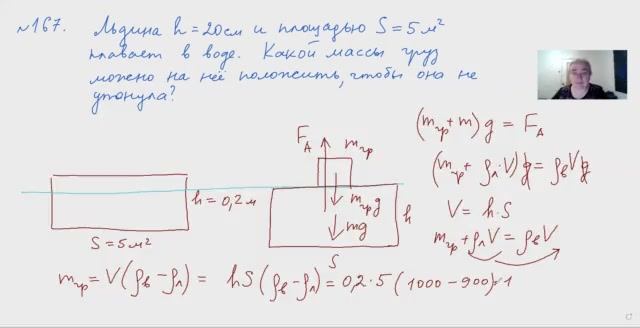 №167. Льдина h = 20см и площадью S = 5 м²
плавает в воде. Какой массы груз
можно на неё положить, чтобы она не
утонула?
F_A
m_гр
(m_гр + m) g = F_A
(m_гр + ρ_л · V) g = ρ_в V g
h = 0,2 м
m_гр g
mg
h
V = h · S
S = 5 м²
S
m_гр + ρ_л V = ρ_в V
m_гр = V (ρ_в − ρ_л) = hS (ρ_в − ρ_л) = 0,2 · 5 (1000 − 900) = 1